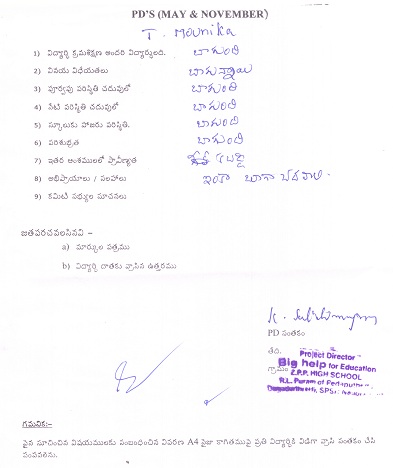 PD'S (MAY & NOVEMBER)
T. Mounika
1) విద్యార్థి క్రమశిక్షణ అందరి విద్యార్థులది. బాగుంది
2) వినయ విధేయతలు బాగున్నాయి
3) పూర్వపు పరిస్థితి చదువులో బాగుంది
4) నేటి పరిస్థితి చదువులో బాగుంది
5) స్కూలుకు హాజరు పరిస్థితి. బాగుంది
6) పరిశుభ్రత బాగుంది
7) ఇతర అంశములలో ప్రావీణ్యత
8) అభిప్రాయాలు / సలహాలు ఇంకా బాగా చదవాలి.
9) కమిటి సభ్యుల సూచనలు
జతపరచవలసినవి –
a) మార్కుల పత్రము
b) విద్యార్థి దాతకు వ్రాసిన ఉత్తరము
PD సంతకం
తేది.
గ్రామం
Project Director
Big help for Education
Z.P.P. HIGH SCHOOL
R.L. Puram of
గమనిక:-
పైన సూచించిన విషయములకు సంబంధించిన వివరణ A4 సైజు కాగితముపై ప్రతి విద్యార్థికి విడిగా వ్రాసి సంతకం చేసి
పంపవలెను.